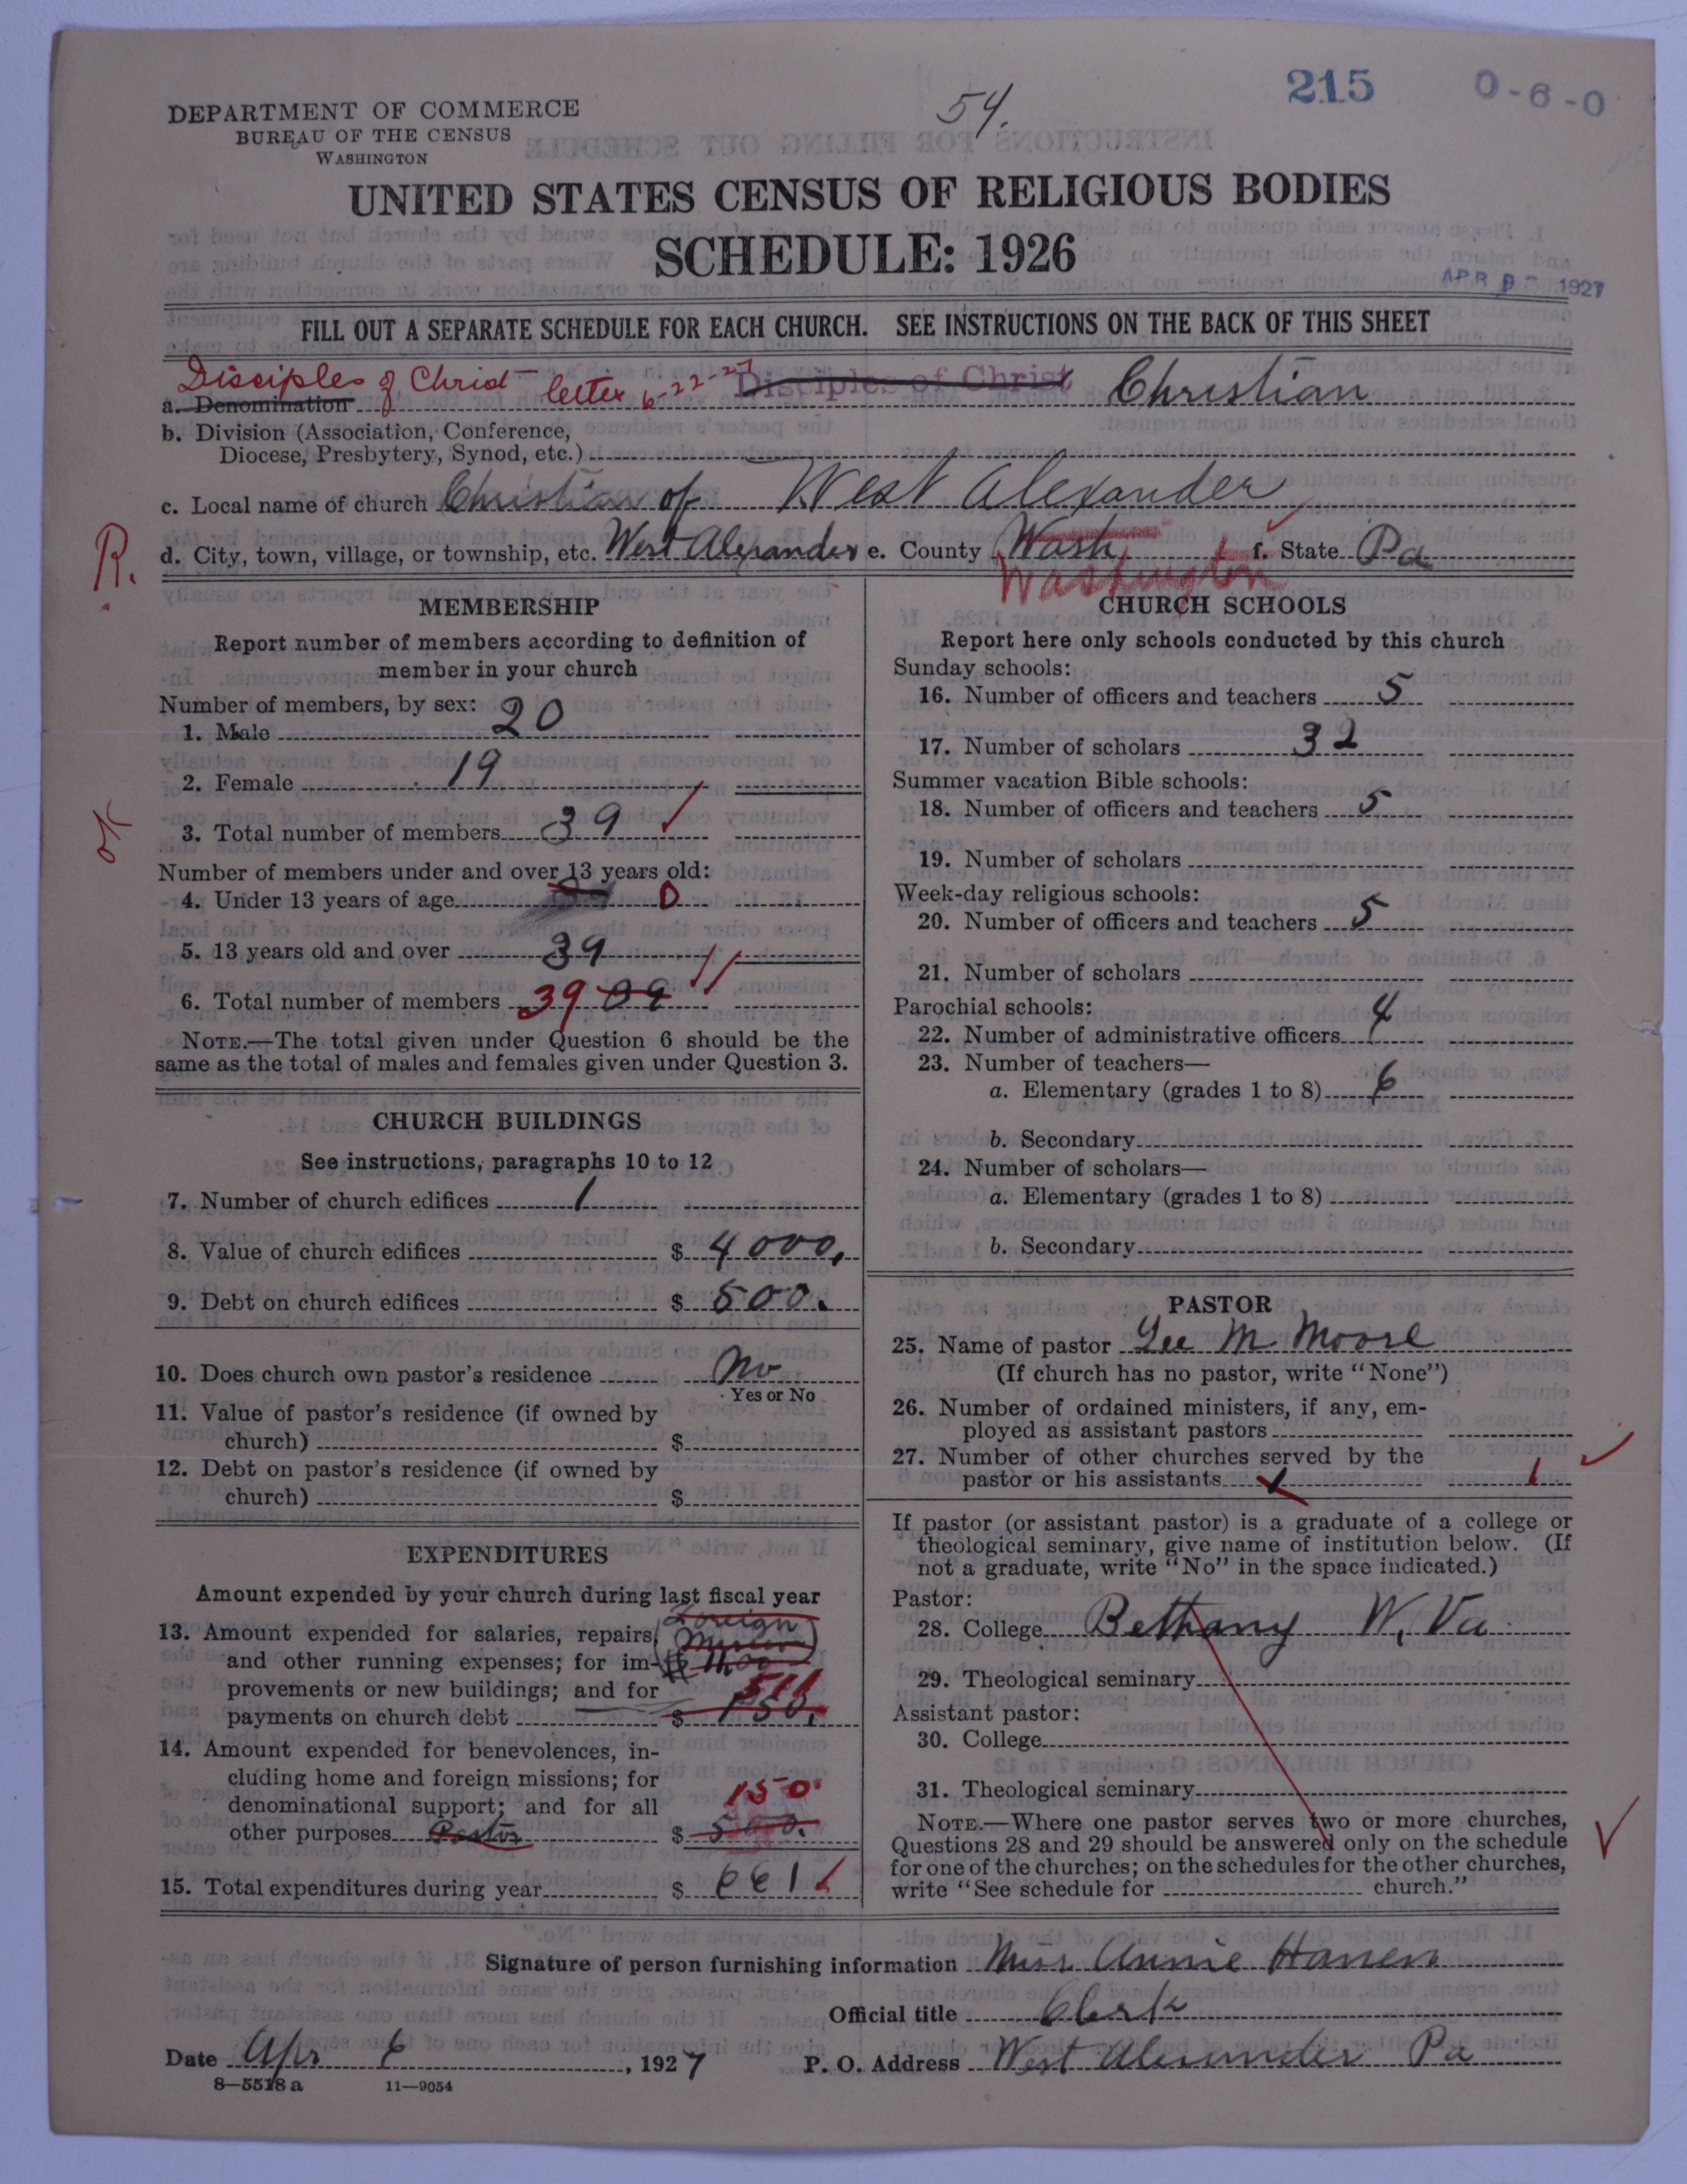 54.
215
0-6-0
DEPARTMENT OF COMMERCE
BUREAU OF THE CENSUS
WASHINGTON
UNITED STATES CENSUS OF RELIGIOUS BODIES
SCHEDULE: 1926
APR 1927
FILL OUT A SEPARATE SCHEDULE FOR EACH CHURCH. SEE INSTRUCTIONS ON THE BACK OF THIS SHEET
Disciples of Christ letter 6-22-27 Disciples of Christ Christian
a. Denomination
b. Division (Association, Conference,
Diocese, Presbytery, Synod, etc.)
c. Local name of church Christian of West Alexander
R.
d. City, town, village, or township, etc. West Alexander e. County Wash f. State Pa
Washington
MEMBERSHIP
Report number of members according to definition of
member in your church
Number of members, by sex:
1. Male 20
2. Female 19
ok
3. Total number of members 39
Number of members under and over 13 years old:
4. Under 13 years of age 0
5. 13 years old and over 39
6. Total number of members 39
NOTE.—The total given under Question 6 should be the
same as the total of males and females given under Question 3.
CHURCH BUILDINGS
See instructions, paragraphs 10 to 12
7. Number of church edifices 1
8. Value of church edifices $ 4000.
9. Debt on church edifices $ 500.
10. Does church own pastor's residence No
Yes or No
11. Value of pastor's residence (if owned by
church) $
12. Debt on pastor's residence (if owned by
church) $
EXPENDITURES
Amount expended by your church during last fiscal year
Foreign
13. Amount expended for salaries, repairs, Mission
and other running expenses; for im- $ 11.00
provements or new buildings; and for 511
payments on church debt $ 150.
14. Amount expended for benevolences, in-
cluding home and foreign missions; for
denominational support; and for all 150
other purposes Pastor $ 500.
15. Total expenditures during year $ 661
CHURCH SCHOOLS
Report here only schools conducted by this church
Sunday schools:
16. Number of officers and teachers 5
17. Number of scholars 32
Summer vacation Bible schools:
18. Number of officers and teachers 5
19. Number of scholars
Week-day religious schools:
20. Number of officers and teachers 5
21. Number of scholars
Parochial schools:
22. Number of administrative officers 4
23. Number of teachers—
a. Elementary (grades 1 to 8) 6
b. Secondary
24. Number of scholars—
a. Elementary (grades 1 to 8)
b. Secondary
PASTOR
25. Name of pastor Lee M. Moore
(If church has no pastor, write "None")
26. Number of ordained ministers, if any, em-
ployed as assistant pastors
27. Number of other churches served by the
pastor or his assistants 1
If pastor (or assistant pastor) is a graduate of a college or
theological seminary, give name of institution below. (If
not a graduate, write "No" in the space indicated.)
Pastor:
28. College Bethany W. Va
29. Theological seminary
Assistant pastor:
30. College
31. Theological seminary
NOTE.—Where one pastor serves two or more churches,
Questions 28 and 29 should be answered only on the schedule
for one of the churches; on the schedules for the other churches,
write "See schedule for church."
Signature of person furnishing information Miss Annie Hanen
Official title Clerk
Date Apr 6, 1927 P. O. Address West Alexander Pa
8—5518 a 11—9054